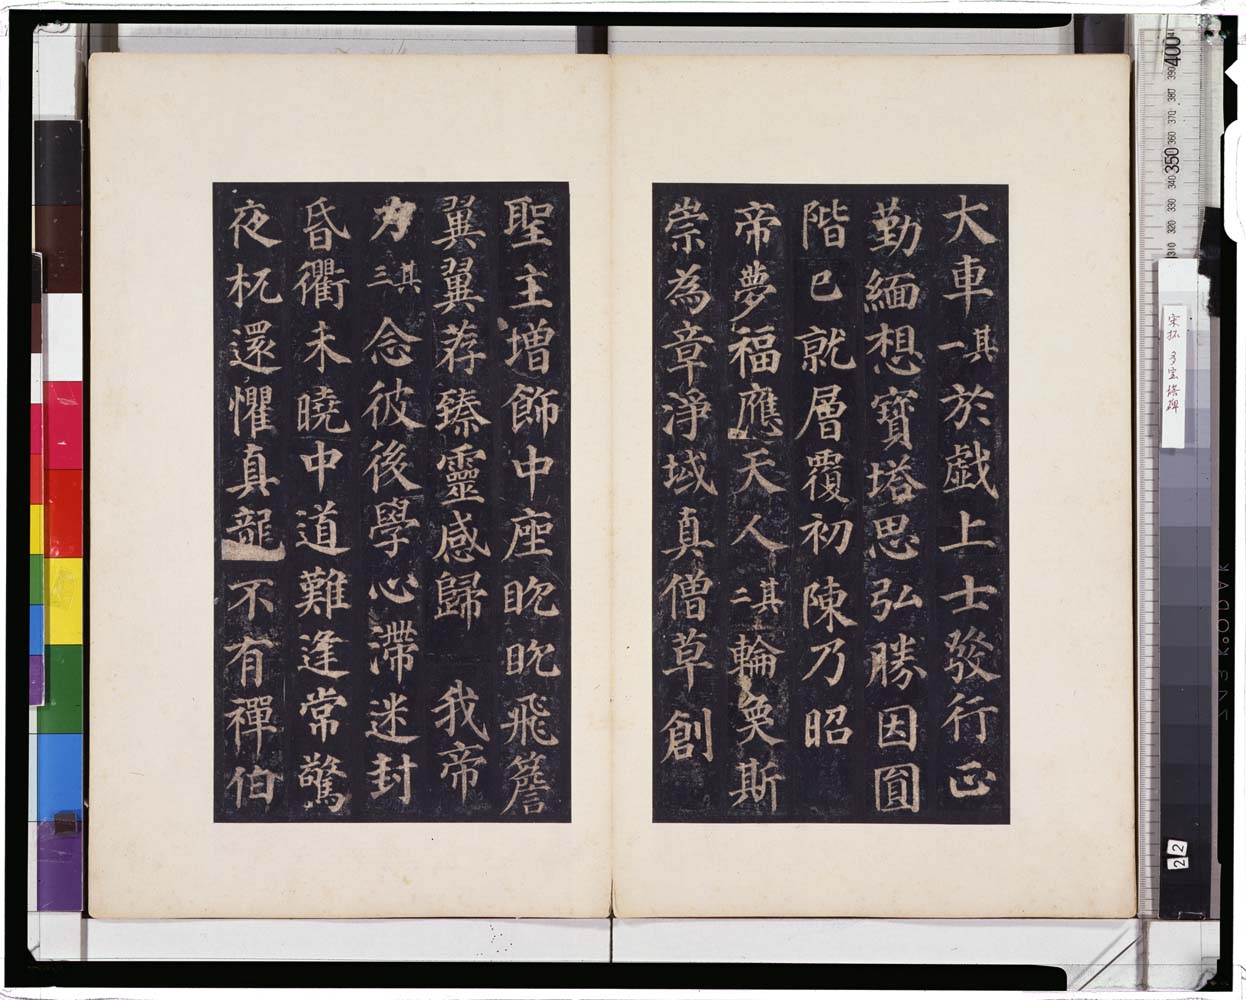 大車其一於戲上士發行正
勤緬想寶塔思弘勝因圓
階已就層覆初陳乃昭
帝夢福應天人其二輪奐斯
崇為章淨域真僧草創
聖主增飾中座晀晀飛簷
翼翼荐臻靈感歸我帝
力其三念彼後學心滯迷封
昏衢未曉中道難逢常驚
夜杌還懼真龍不有禪伯
宋拓 多宝塔碑
22
400
390
380
370
360
350
340
330
320
310